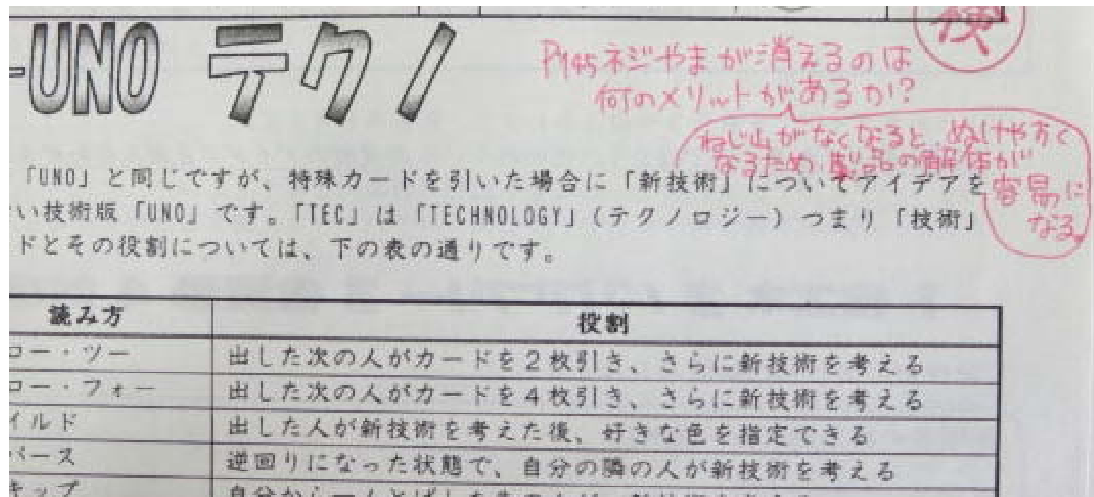 検
-UNO テクノ
P145ネジやまが消えるのは
何のメリットがあるか?
ねじ山がなくなると、ぬけやすく
なるため、製品の解体が
容易に
なる。
「UNO」と同じですが、特殊カードを引いた場合に「新技術」についてアイデアを
い技術版「UNO」です。「TEC」は「TECHNOLOGY」(テクノロジー)つまり「技術」
ドとその役割については、下の表の通りです。
読み方 役割
ロー・ツー 出した次の人がカードを2枚引き、さらに新技術を考える
ロー・フォー 出した次の人がカードを4枚引き、さらに新技術を考える
イルド 出した人が新技術を考えた後、好きな色を指定できる
バース 逆回りになった状態で、自分の隣の人が新技術を考える
キップ